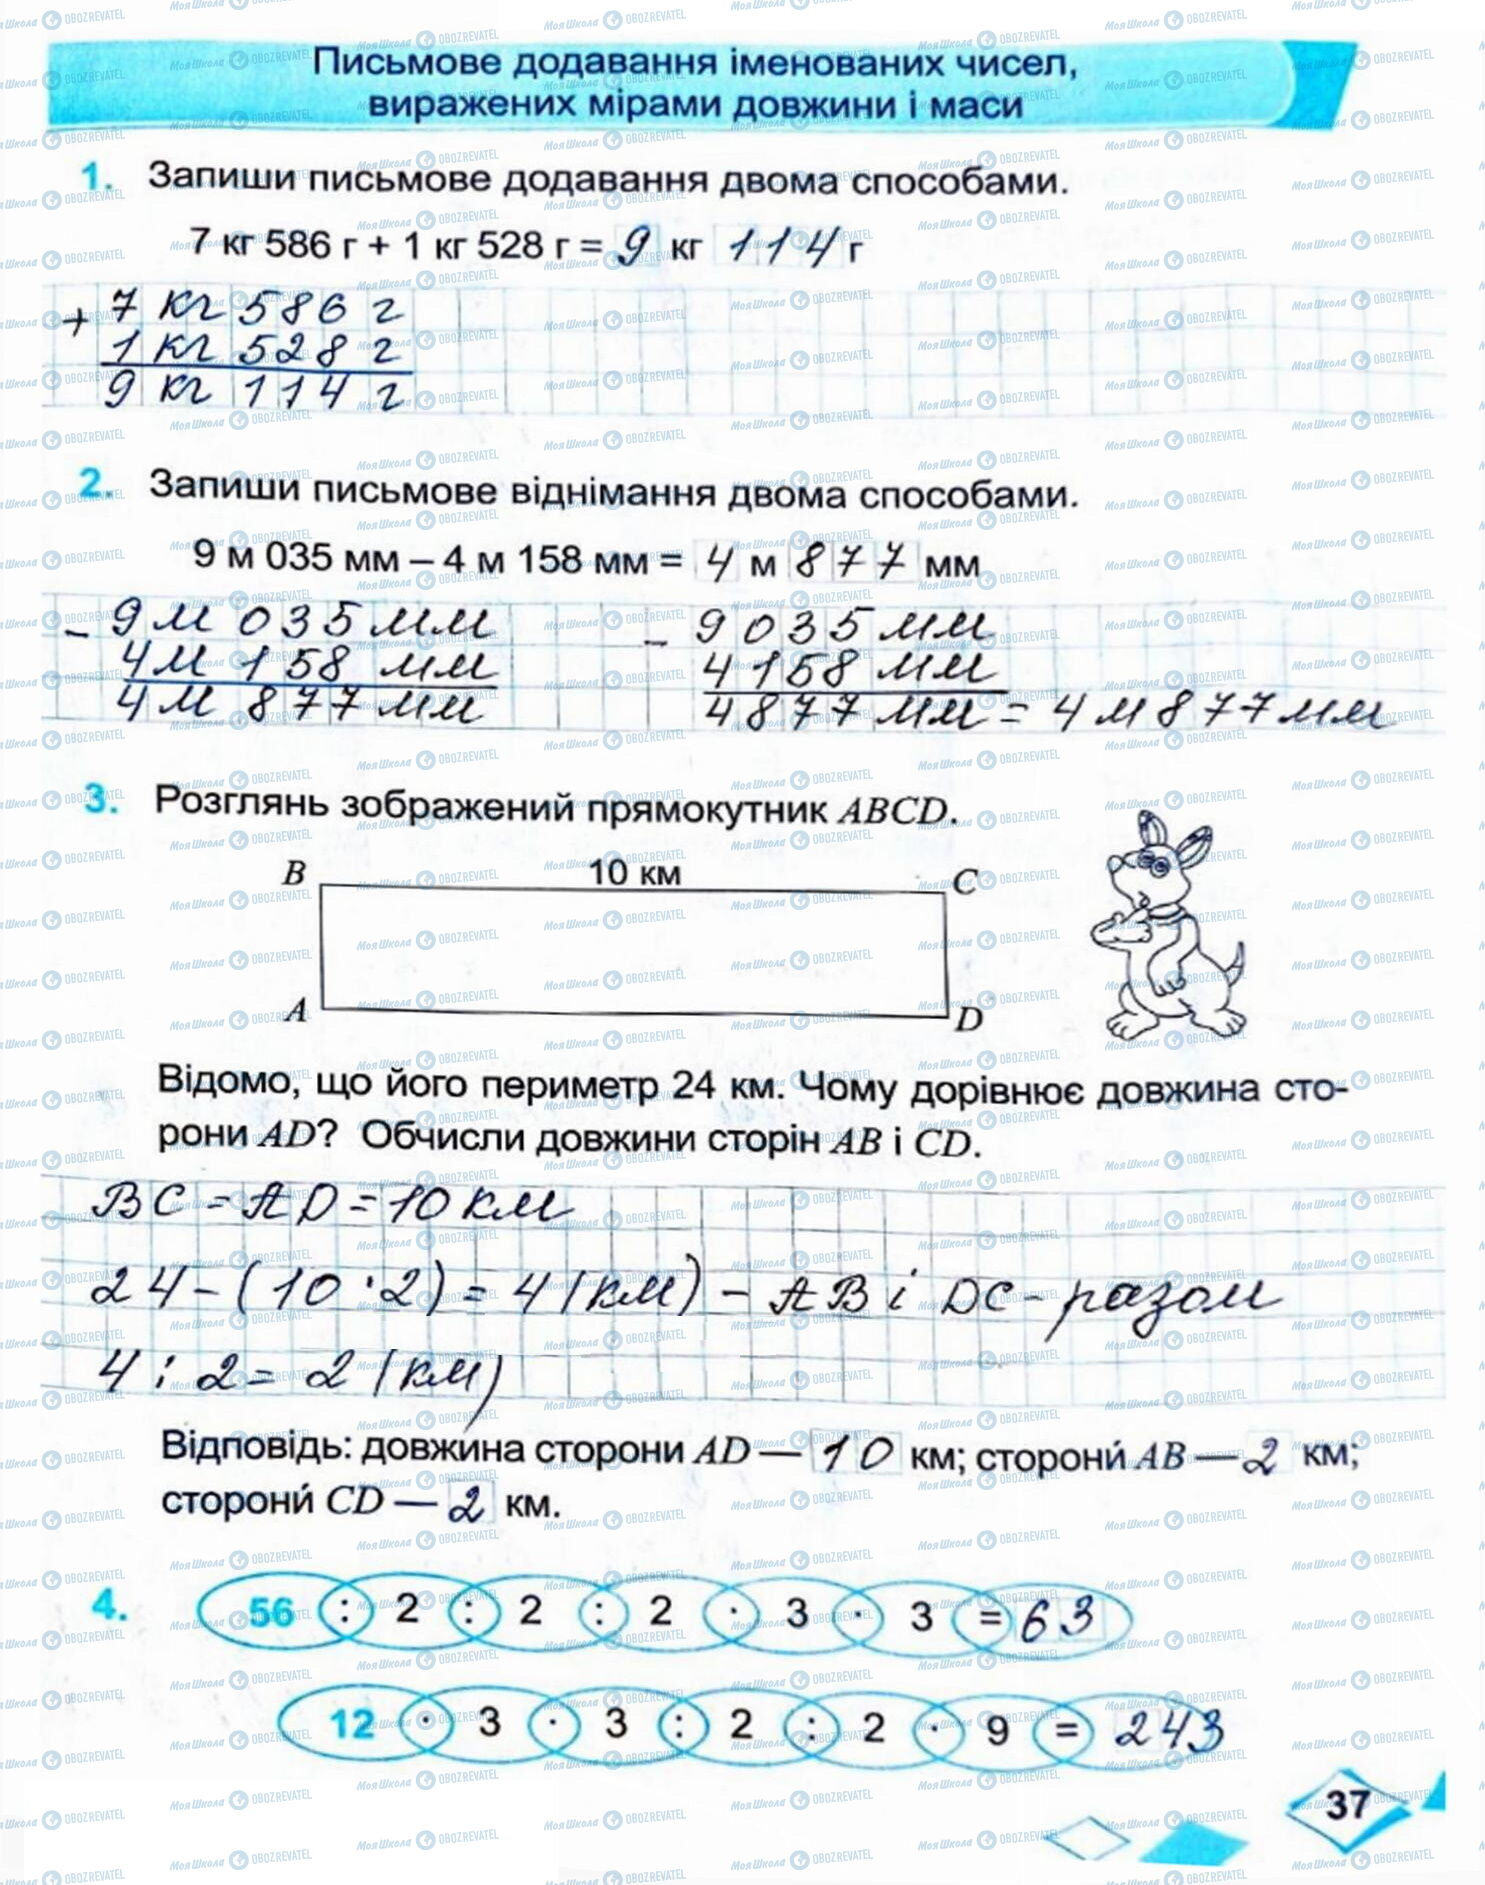 Письмове додавання іменованих чисел,
виражених мірами довжини і маси
1. Запиши письмове додавання двома способами.
7 кг 586 г + 1 кг 528 г = 9 кг 114 г
+ 7 кг 586 г
1 кг 528 г
9 кг 114 г
2. Запиши письмове віднімання двома способами.
9 м 035 мм – 4 м 158 мм = 4 м 877 мм
- 9 м 035 мм - 9035 мм
4 м 158 мм 4158 мм
4 м 877 мм 4877 мм = 4 м 877 мм
3. Розглянь зображений прямокутник ABCD.
B 10 км C
A D
Відомо, що його периметр 24 км. Чому дорівнює довжина сто-
рони AD? Обчисли довжини сторін AB і CD.
BC = AD = 10 км
24 - (10 · 2) = 4 (км) - AB і DC - разом
4 : 2 = 2 (км)
Відповідь: довжина сторони AD — 10 км; сторони́ AB — 2 км;
сторони́ CD — 2 км.
4. 56 : 2 : 2 : 2 · 3 · 3 = 63
12 · 3 · 3 : 2 : 2 · 9 = 243
37
МояШкола OBOZREVATEL